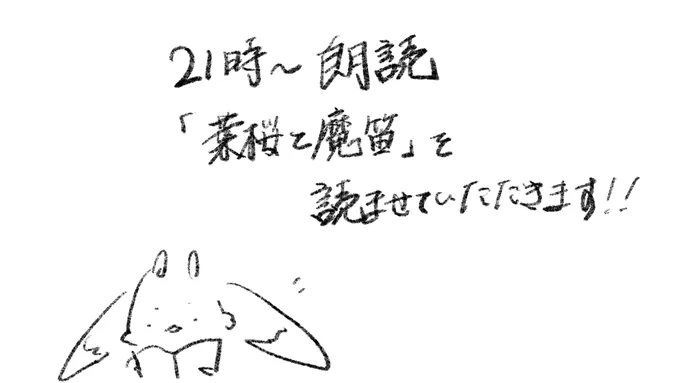 21時~朗読
「葉桜と魔笛」を
読ませていただきます!!